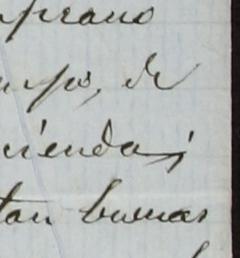 prano
mpo, de
vienda;
tan buenas